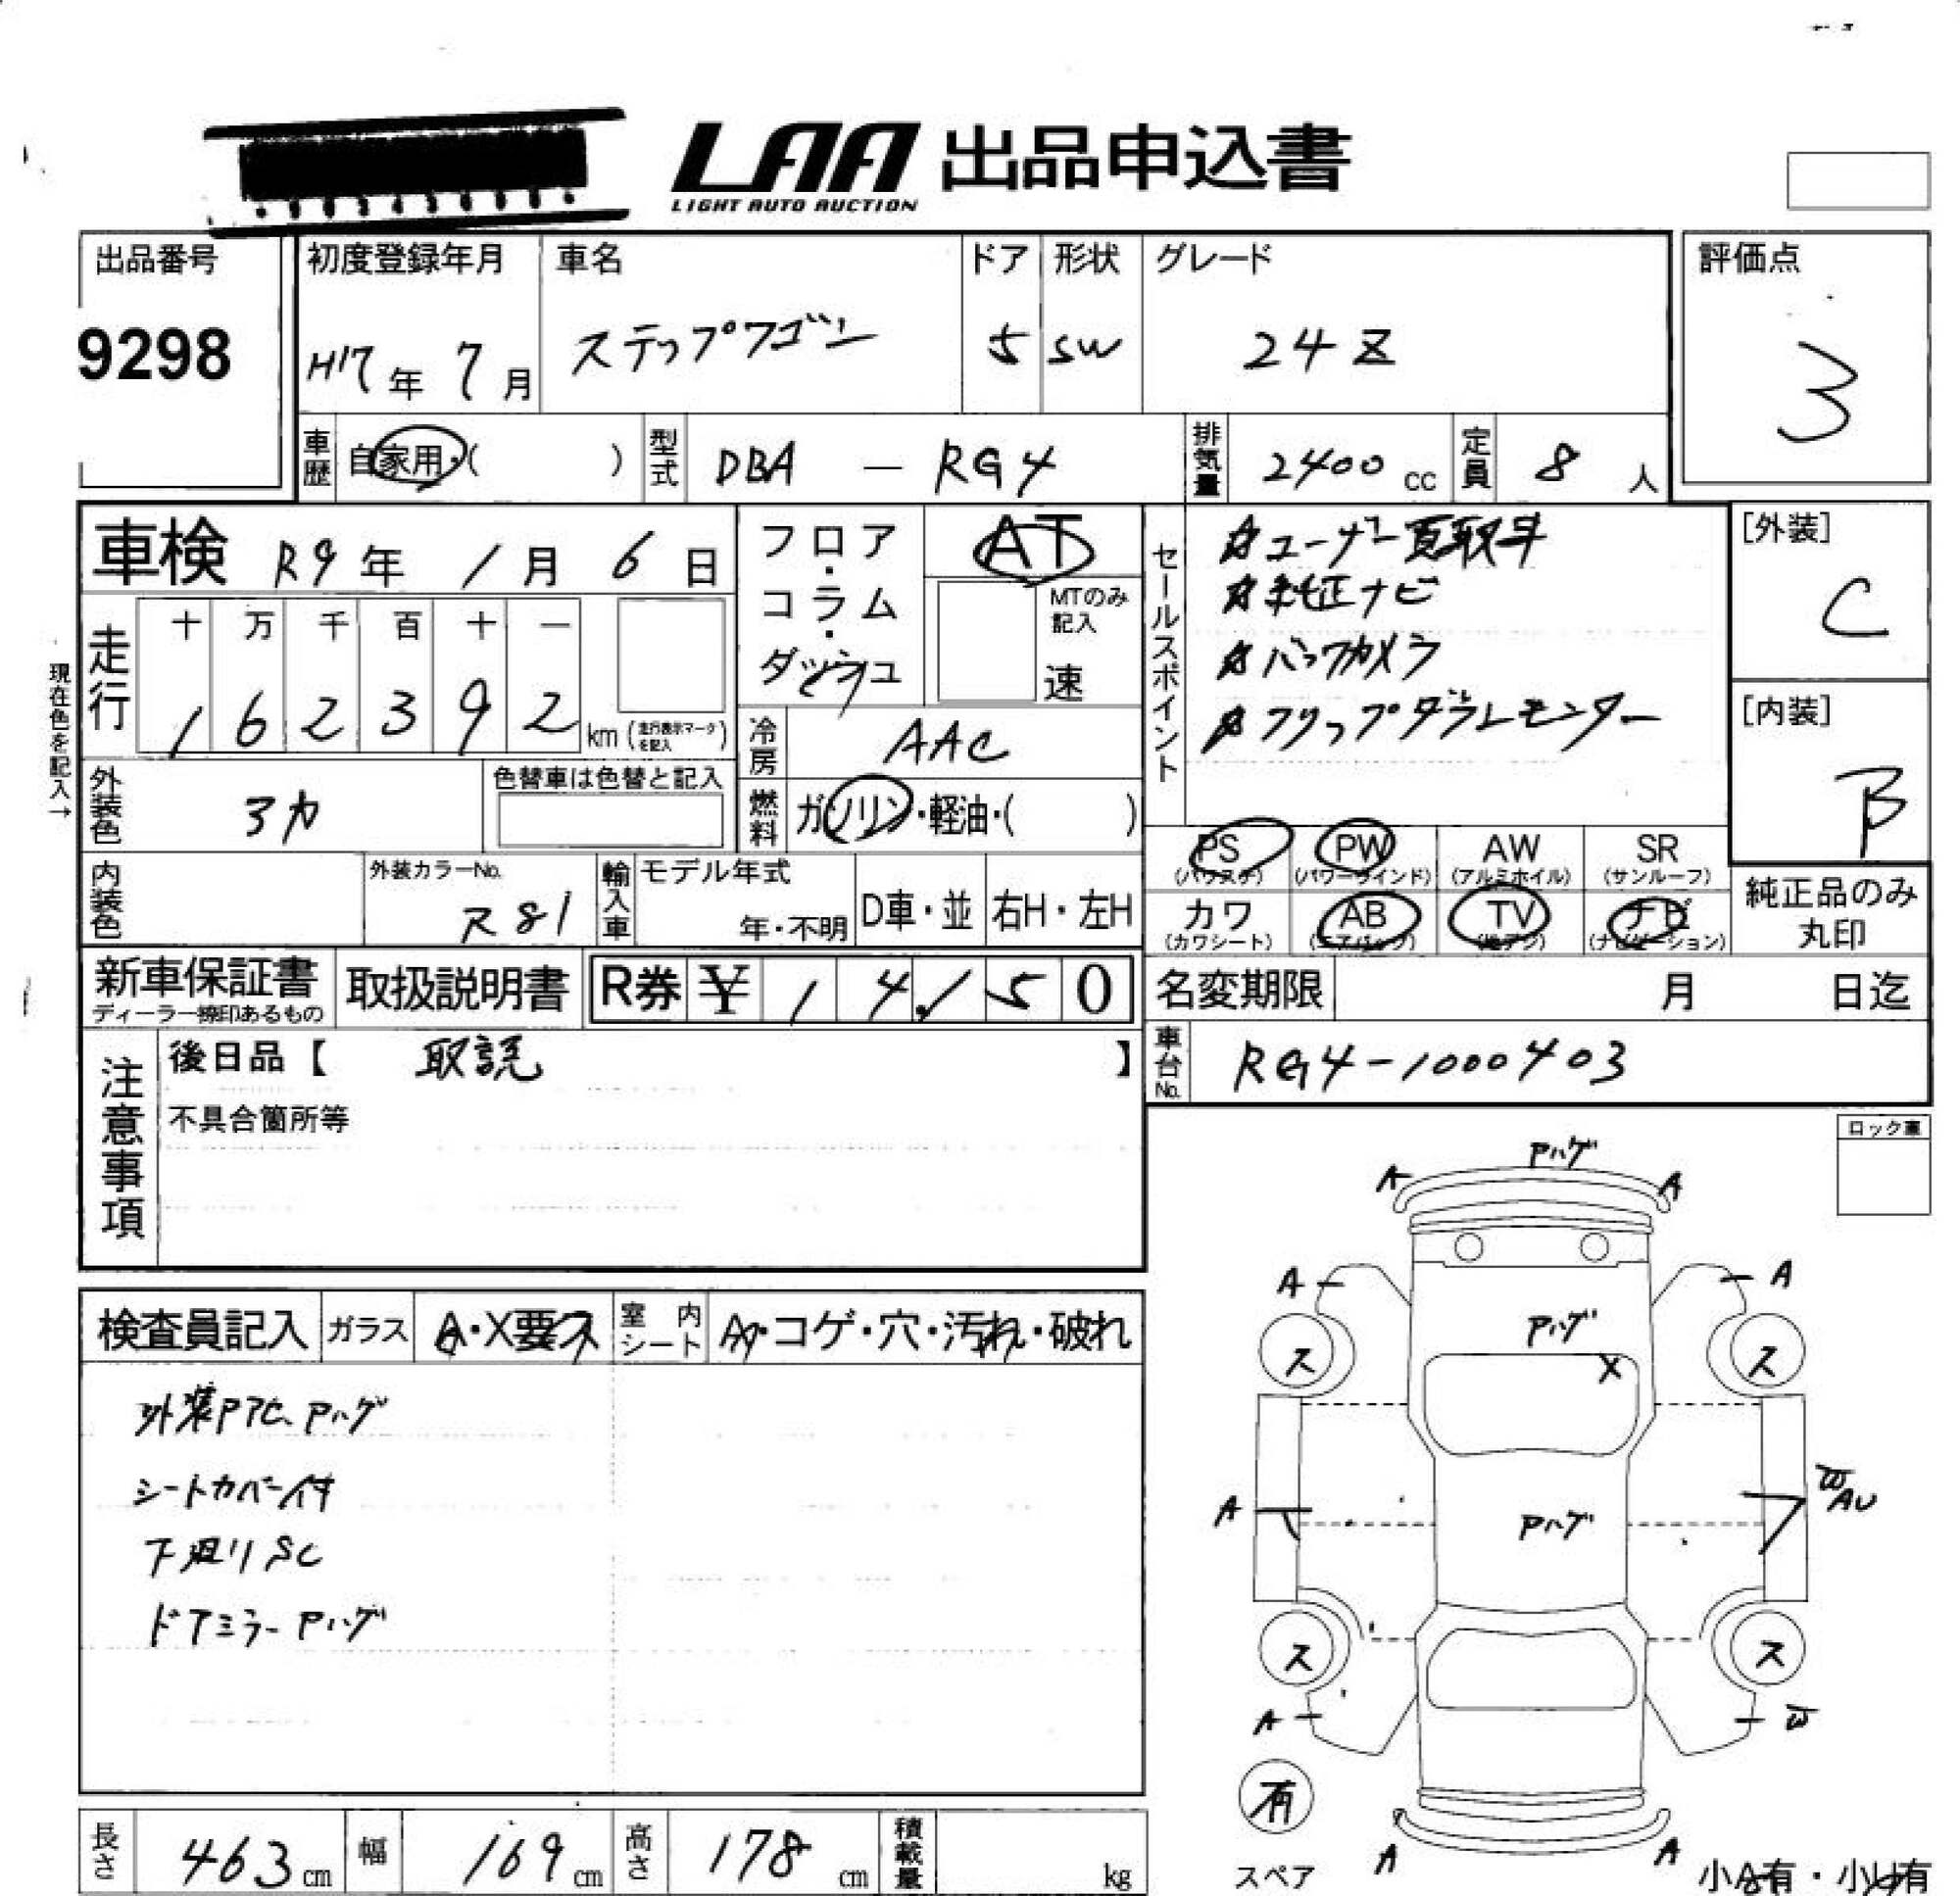 LAA 出品申込書
LIGHT AUTO AUCTION
出品番号
9298
初度登録年月
H17年 7月
車名
ステップワゴン
ドア
5
形状
SW
グレード
24Z
評価点
3
車歴
自家用・( )
型式
DBA — RG4
排気量
2400 cc
定員
8 人
車検 R9年 1月 6日
走行
十 万 千 百 十 一
1 6 2 3 9 2 km (走行表示マークを記入)
現在色を記入→
フロア・コラム・ダッシュ
AT
MTのみ記入
速
冷房
AAC
燃料
ガソリン・軽油・( )
セールスポイント
ユーザー買取車
純正ナビ
バックカメラ
フリップダウンモニター
[外装]
C
[内装]
B
外装色
ヨカ
色替車は色替と記入
内装色
外装カラーNo.
R81
輸入車
モデル年式
年・不明
D車・並
右H・左H
PS
(パワステ)
PW
(パワーウインド)
AW
(アルミホイル)
SR
(サンルーフ)
カワ
(カワシート)
AB
(エアバッグ)
TV
(地デジ)
ナビ
(ナビゲーション)
純正品のみ
丸印
新車保証書
ディーラー捺印あるもの
取扱説明書
R券 ¥ 1 4,1 5 0
名変期限 月 日迄
車台No.
RG4-1000403
注意事項
後日品【 取説 】
不具合箇所等
ロック車
検査員記入
ガラス
A・X要ス
室内シート
A・コゲ・穴・汚れ・破れ
外装PTC、Pハゲ
シートカバー付
下廻りSC
ドアミラーPハゲ
Pハゲ
A
A
A
A
Pハゲ
X
ス
ス
A
Pハゲ
W
AU
ス
ス
A
W
有
スペア
A
A
小A有・小U有
長さ 463 cm
幅 169 cm
高さ 178 cm
積載量 kg